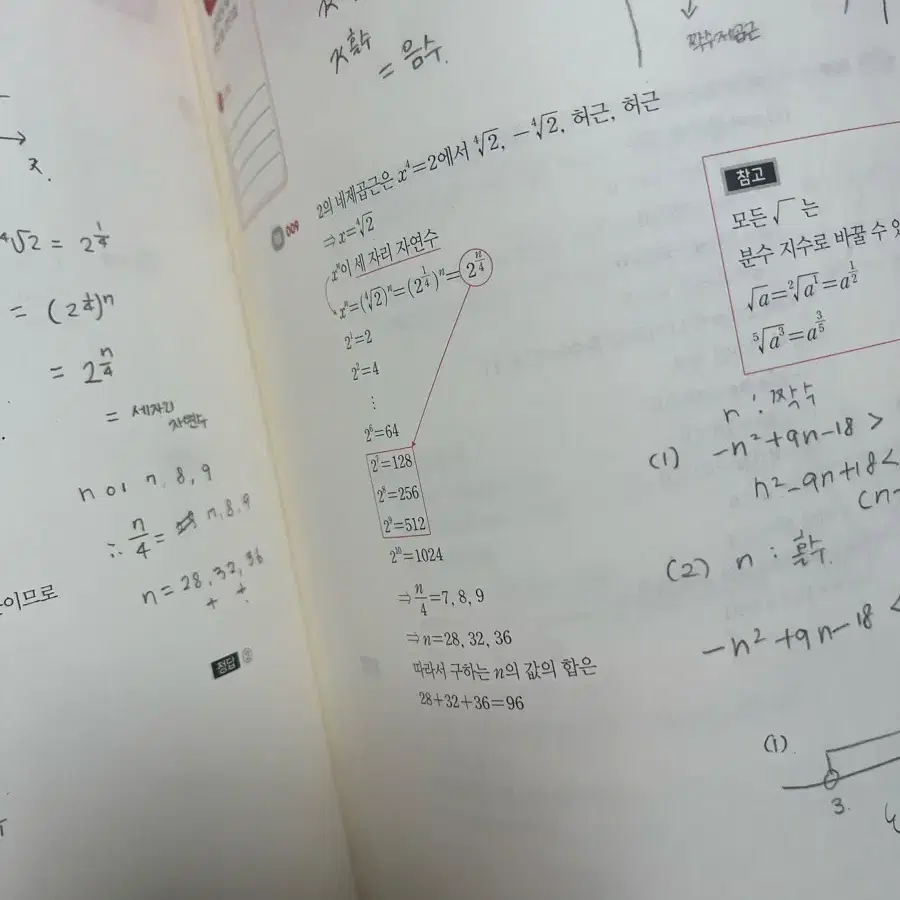 x.
⁴√2 = 2^(1/4)
= (2^(1/4))^n
= 2^(n/4)
= 세자리
자연수
n이 7, 8, 9
∴ n/4 = 7, 8, 9
n = 28, 32, 36
+ +
이므로
정답 ②
x^홀수
= 음수.
짝수제곱근
009
2의 네제곱근은 x⁴=2에서 ⁴√2, -⁴√2, 허근, 허근
⇒x=⁴√2
xⁿ이 세 자리 자연수
xⁿ=(⁴√2)ⁿ=(2^(1/4))ⁿ=2^(n/4)
2¹=2
2²=4
⋮
2⁶=64
2⁷=128
2⁸=256
2⁹=512
2¹⁰=1024
⇒n/4=7, 8, 9
⇒n=28, 32, 36
따라서 구하는 n의 값의 합은
28+32+36=96
참고
모든 √ 는
분수 지수로 바꿀 수
√a=²√a¹=a^(1/2)
⁵√a³=a^(3/5)
n : 짝수
(1) -n²+9n-18 >
n²-9n+18 <
(n-
(2) n : 홀수.
-n²+9n-18 <
(1)
3.